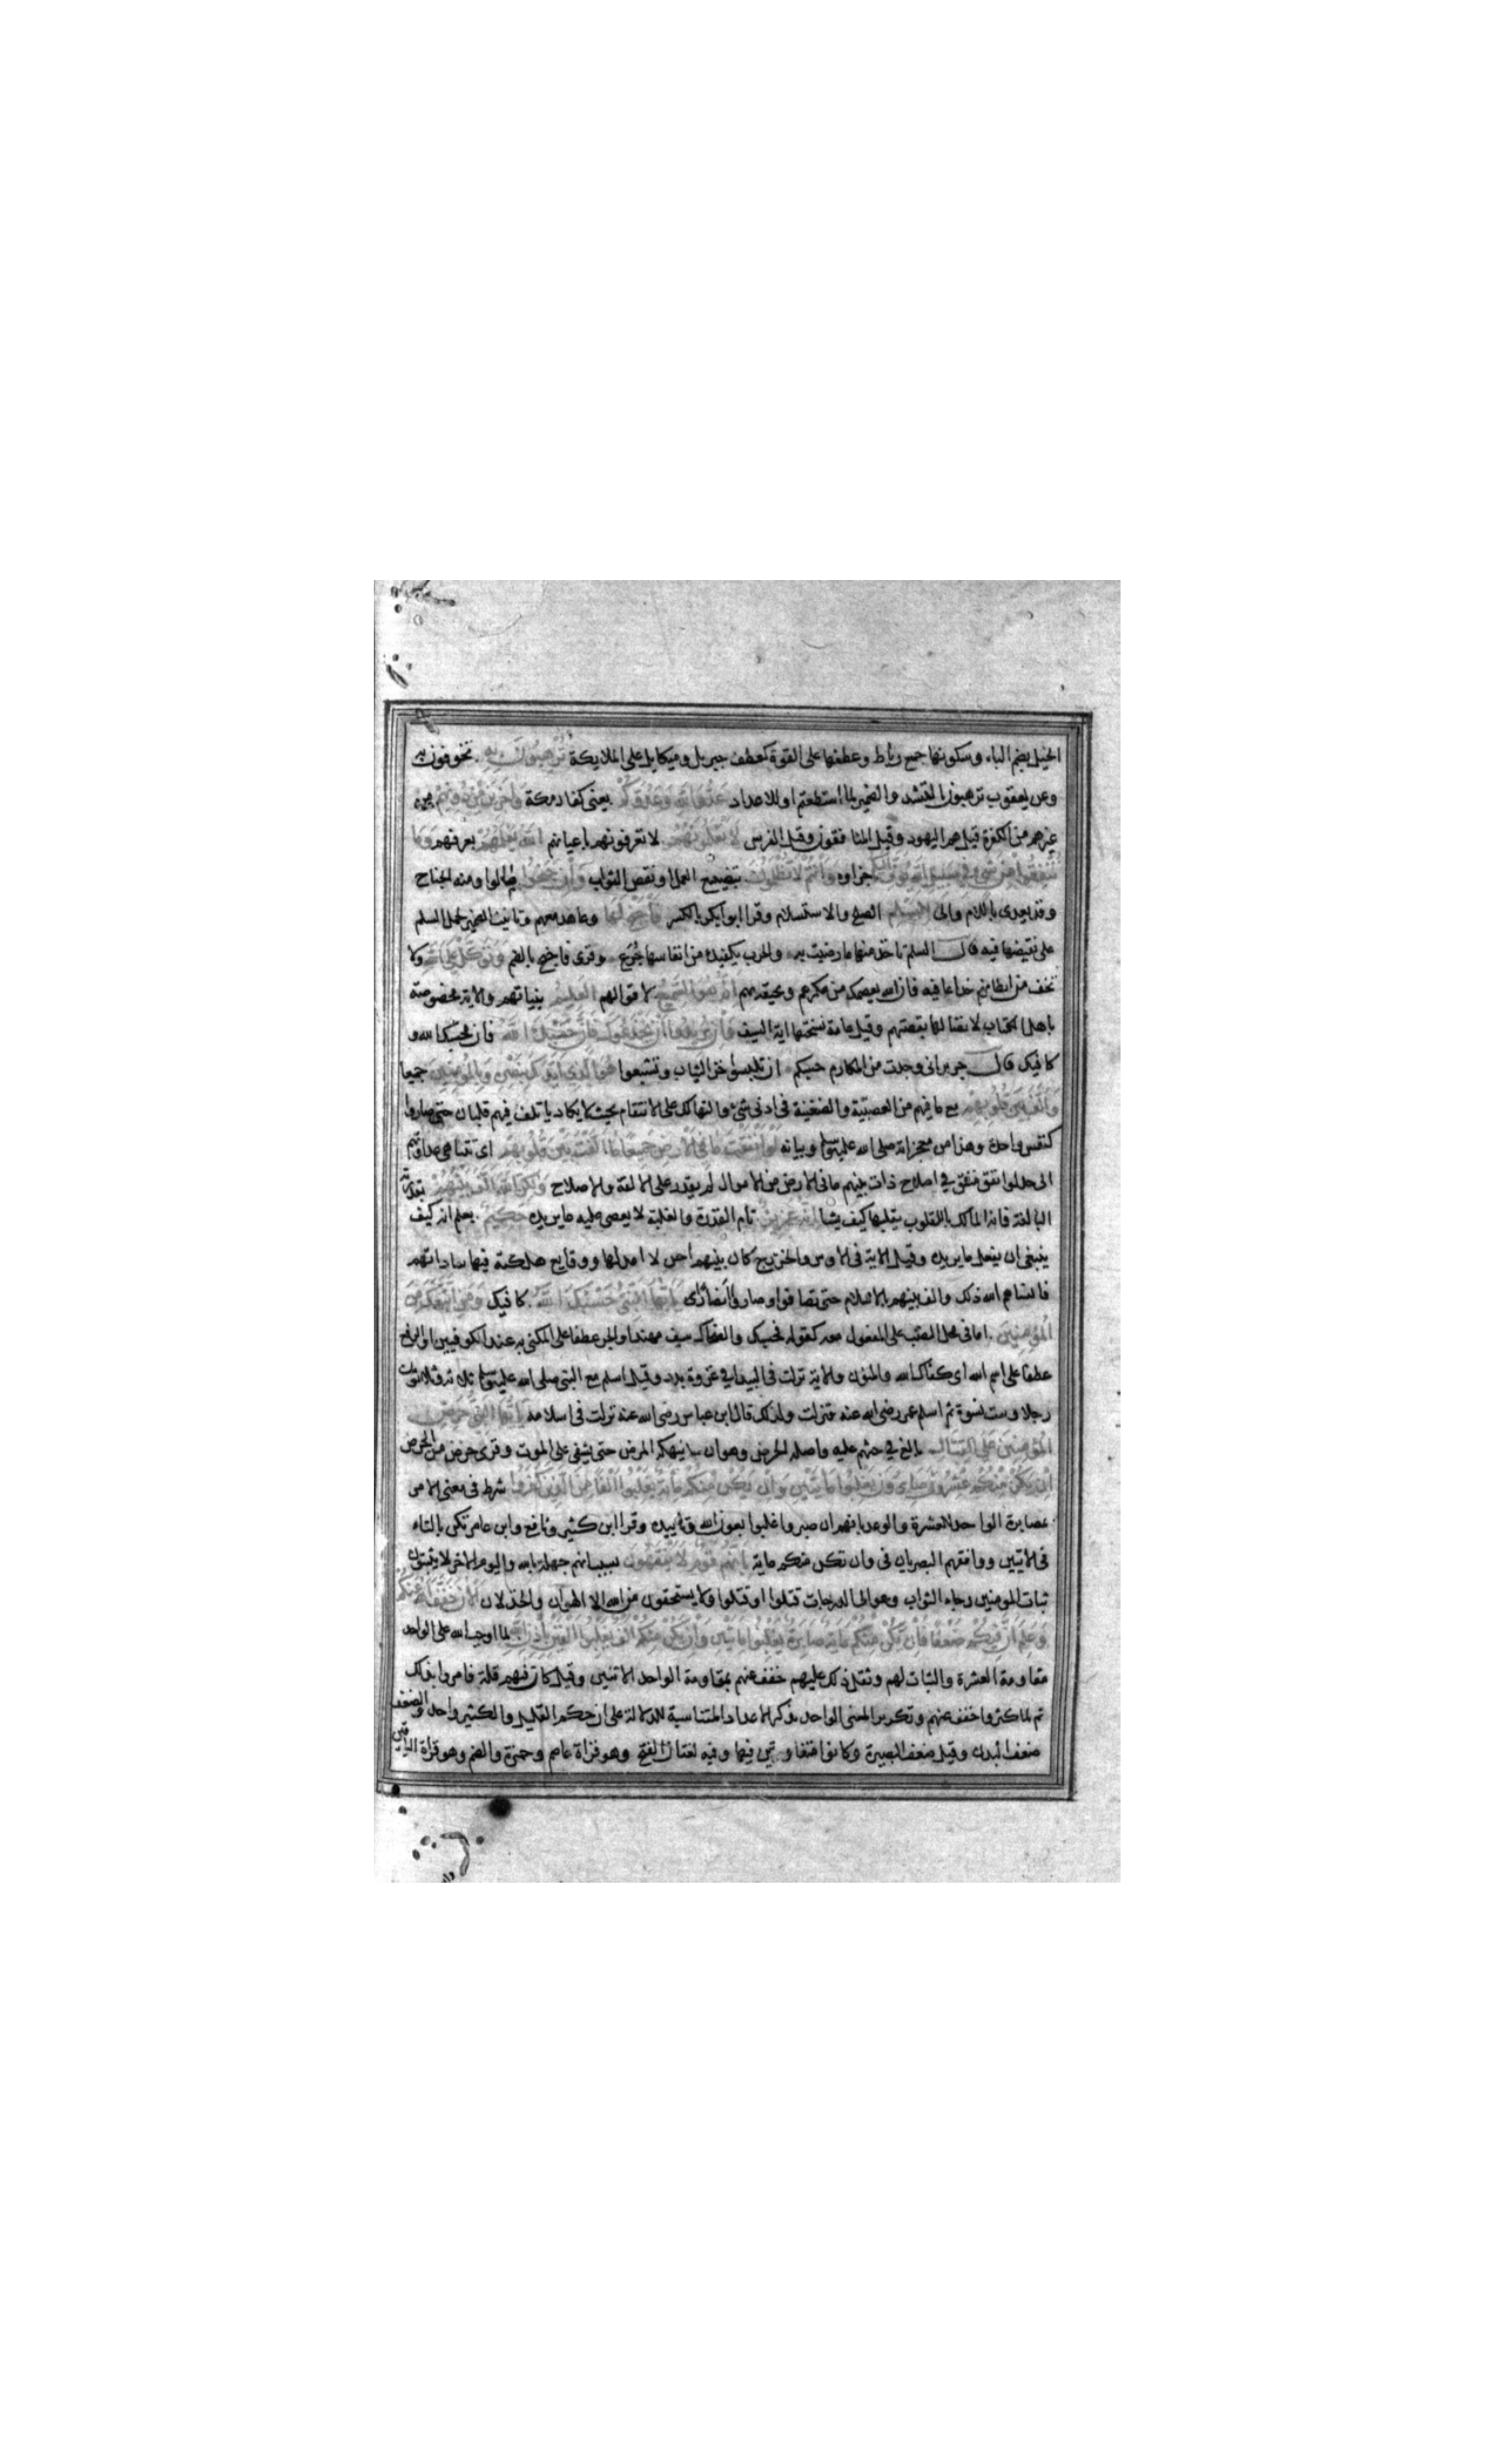 الخيل بضم الباء وسكونها جمع رباط وعطفها على القوة كعطف جبريل وميكايل على الملايكة تُرْهِبُونَ بِهِ تخوفون به
وعن يعقوب ترهبون بالتشديد والضمير لما استطعتم او للاعداد عَدُوَّ اللَّهِ وَعَدُوَّكُمْ يعنى كفار مكة وَآخَرِينَ مِنْ دُونِهِمْ من
غيرهم من الكفرة قيل هم اليهود وقيل المنافقون وقيل الفرس لَا تَعْلَمُونَهُمْ لا تعرفونهم باعيانهم اللَّهُ يَعْلَمُهُمْ يعرفهم وَمَا
تُنْفِقُوا مِنْ شَيْءٍ فِي سَبِيلِ اللَّهِ يُوَفَّ إِلَيْكُمْ جزاوه وَأَنْتُمْ لَا تُظْلَمُونَ بتضييع العمل او نقص الثواب وَإِنْ جَنَحُوا مالوا ومنه الجناح
وقد يعدى باللام والى لِلسَّلْمِ الصلح والاستسلام وقرا ابو بكر بالكسر فَاجْنَحْ لَهَا وعاهد معهم وتانيث الضمير لحمل السلم
على نقيضها فيه قال السلم تاخذ منها ما رضيت به والحرب يكفيك من انفاسها جُرَع وقرى فاجنح بالضم وَتَوَكَّلْ عَلَى اللَّهِ ولا
تخف من ابطانهم خداعا فيه فان الله يعصمك من مكرهم ويحيقه بهم إِنَّهُ هُوَ السَّمِيعُ لاقوالهم الْعَلِيمُ بنياتهم والاية مخصوصة
باهل الكتاب لاتصالها بقصتهم وقيل عامة نسختها اية السيف وَإِنْ يُرِيدُوا أَنْ يَخْدَعُوكَ فَإِنَّ حَسْبَكَ اللَّهُ فان محسبك الله و
كافيك قال جرير انى وجدت من المكارم حسبكم ان تلبسوا خز الثياب وتشبعوا هُوَ الَّذِي أَيَّدَكَ بِنَصْرِهِ وَبِالْمُؤْمِنِينَ جميعا
وَأَلَّفَ بَيْنَ قُلُوبِهِمْ مع ما فيهم من العصبية والضغينة فى ادنى شئ والتهالك على الانتقام بحيث لا يكاد ياتلف فيهم قلبان حتى صاروا
كنفس واحدة وهذا من معجزاته صلى الله عليه وسلم وبيانه لَوْ أَنْفَقْتَ مَا فِي الْأَرْضِ جَمِيعًا مَا أَلَّفْتَ بَيْنَ قُلُوبِهِمْ اى تناهى عداوتهم
الى حد لو انفق منفق فى اصلاح ذات بينهم ما فى الارض من الاموال لم يقدر على الالفة والاصلاح وَلَكِنَّ اللَّهَ أَلَّفَ بَيْنَهُمْ بقدرته
البالغة فانه المالك للقلوب يقلبها كيف يشا إِنَّهُ عَزِيزٌ تام القدرة والغلبة لا يعصى عليه ما يريده حَكِيمٌ يعلم انه كيف
ينبغى ان يفعل ما يريده وقيل الاية فى الاوس والخزرج كان بينهم احن لا امد لها ووقايع هلكت فيها ساداتهم
فانساهم الله ذلك والف بينهم بالاسلام حتى تصافوا وصاروا انصارا يَا أَيُّهَا النَّبِيُّ حَسْبُكَ اللَّهُ كافيك وَمَنِ اتَّبَعَكَ مِنَ
الْمُؤْمِنِينَ اما فى محل النصب على المفعول معه كقوله فحسبك والضحاك سيف مهند او الجر عطفا على المكنى به عند الكوفيين او الرفع
عطفا على اسم الله اى كفاك الله والمؤمنون والاية نزلت فى البيداء فى غزوة بدر وقيل اسلم مع النبى صلى الله عليه وسلم ثلاثة وثلاثون
رجلا وست نسوة ثم اسلم عمر رضى الله عنه فنزلت ولذلك قال ابن عباس رضى الله عنه نزلت فى اسلامه يَا أَيُّهَا النَّبِيُّ حَرِّضِ
الْمُؤْمِنِينَ عَلَى الْقِتَالِ بالغ فى حثهم عليه واصله الحرض وهو ان ينهكه المرض حتى يشفى على الموت وقرى حرص من الحرص
إِنْ يَكُنْ مِنْكُمْ عِشْرُونَ صَابِرُونَ يَغْلِبُوا مِائَتَيْنِ وَإِنْ يَكُنْ مِنْكُمْ مِائَةٌ يَغْلِبُوا أَلْفًا مِنَ الَّذِينَ كَفَرُوا شرط فى معنى الامر
بمصابرة الواحد للعشرة والوعد بانهم ان صبروا غلبوا بعون الله وتاييده وقرا ابن كثير ونافع وابن عامر تكن بالتاء
فى الايتين ووافقهم البصريان فى وان تكن منكم ماية بِأَنَّهُمْ قَوْمٌ لَا يَفْقَهُونَ بسبب انهم جهلة بالله واليوم الاخر لا يثبتون
ثبات المومنين رجاء الثواب وعوالى الدرجات قتلوا او قتلوا ولا يستحقون من الله الا الهوان والخذلان الْآنَ خَفَّفَ اللَّهُ عَنْكُمْ
وَعَلِمَ أَنَّ فِيكُمْ ضَعْفًا فَإِنْ تَكُنْ مِنْكُمْ مِائَةٌ صَابِرَةٌ يَغْلِبُوا مِائَتَيْنِ وَإِنْ يَكُنْ مِنْكُمْ أَلْفٌ يَغْلِبُوا أَلْفَيْنِ بِإِذْنِ اللَّهِ لما اوجب الله على الواحد
مقاومة العشرة والثبات لهم وثقل ذلك عليهم خفف عنهم بمقاومة الواحد الاثنين وقيل كان فيهم قلة فامروا بذلك
ثم لما كثروا خفف عنهم وتكرير المعنى الواحد بذكر الاعداد المتناسبة للدلالة على ان حكم القليل والكثير واحد والضعف
ضعف البدن وقيل ضعف البصيرة وكانوا متفاوتين فيها وفيه لغتان الفتح وهو قراة عاصم وحمزة والضم وهو قراة الباقين